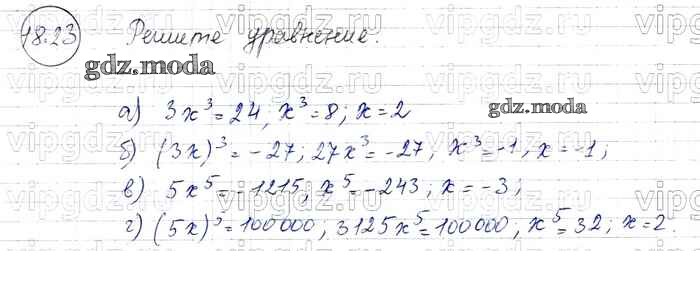 18.23 Решите уравнение.
gdz.moda
а) 3x³=24, x³=8; x=2
gdz.moda
б) (3x)³=-27; 27x³=-27, x³=-1, x=-1;
в) 5x⁵=-1215, x⁵=-243; x=-3;
г) (5x)⁵=100000; 3125x⁵=100000, x⁵=32; x=2.